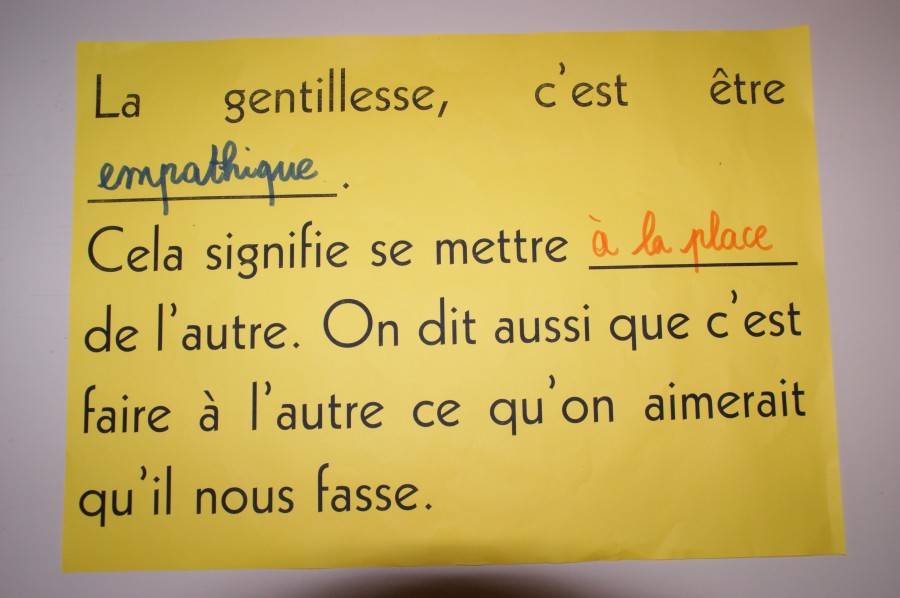 La gentillesse, c'est être
empathique.
Cela signifie se mettre à la place
de l'autre. On dit aussi que c'est
faire à l'autre ce qu'on aimerait
qu'il nous fasse.